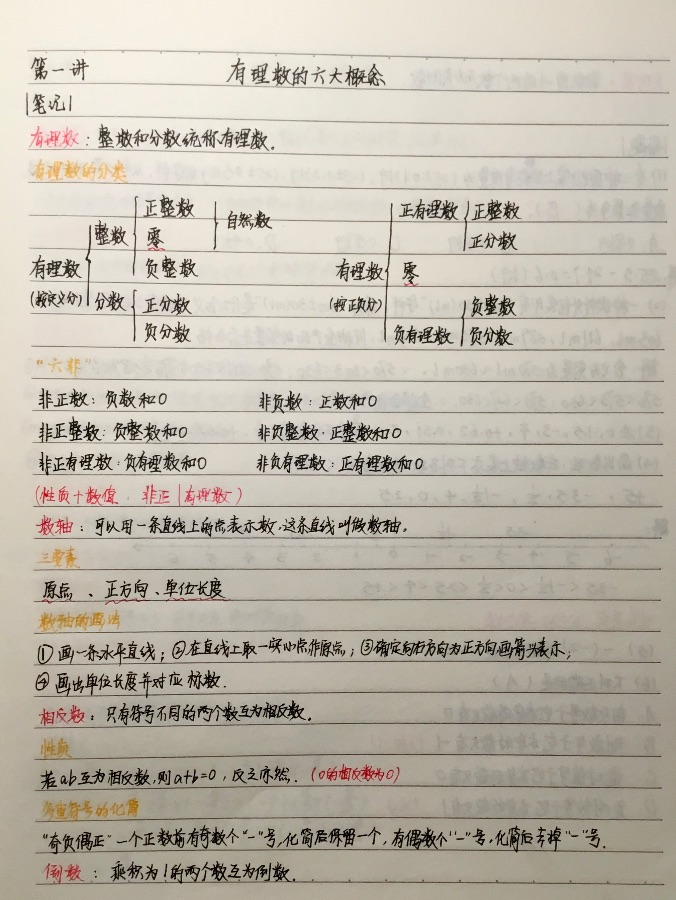 第一讲 有理数的六大概念
|笔记|
有理数：整数和分数统称有理数.
有理数的分类
正整数 正有理数 正整数
整数 零 自然数 正分数
有理数 负整数 有理数 零
(按定义分) 分数 正分数 (按正负分) 负整数
负分数 负有理数 负分数
"六非"
非正数：负数和0 非负数：正数和0
非正整数：负整数和0 非负整数：正整数和0
非正有理数：负有理数和0 非负有理数：正有理数和0
(性质+数值，非正|有理数)
数轴：可以用一条直线上的点表示数，这条直线叫做数轴。
三要素
原点、正方向、单位长度
数轴的画法
①画一条水平直线；②在直线上取一实心点作原点；③确定向右方向为正方向画箭头表示；
④画出单位长度并对应标数.
相反数：只有符号不同的两个数互为相反数.
性质
若ab互为相反数，则a+b=0，反之亦然.(0的相反数为0)
多重符号的化简
"奇负偶正"一个正数前有奇数个"-"号，化简后保留一个，有偶数个"-"号，化简后去掉"-"号.
倒数：乘积为1的两个数互为倒数.